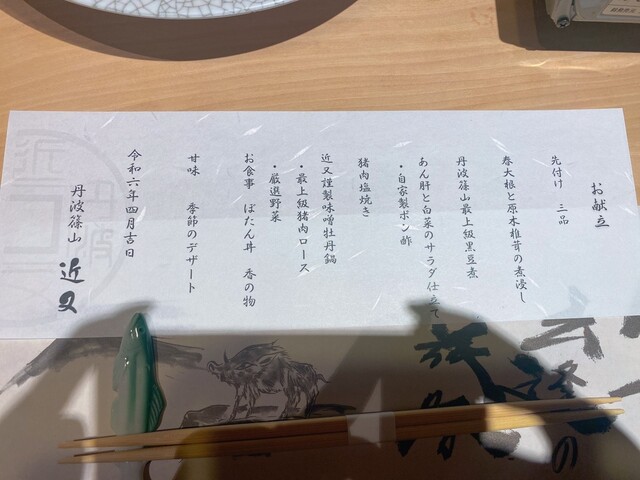 お献立
先付け　三品
春大根と原木椎茸の煮浸し
丹波篠山最上級黒豆煮
あん肝と白菜のサラダ仕立て
・自家製ポン酢
猪肉塩焼き
近又謹製味噌牡丹鍋
・最上級猪肉ロース
・厳選野菜
お食事　ぼたん丼　香の物
甘味　季節のデザート
令和六年四月吉日
丹波篠山　近又